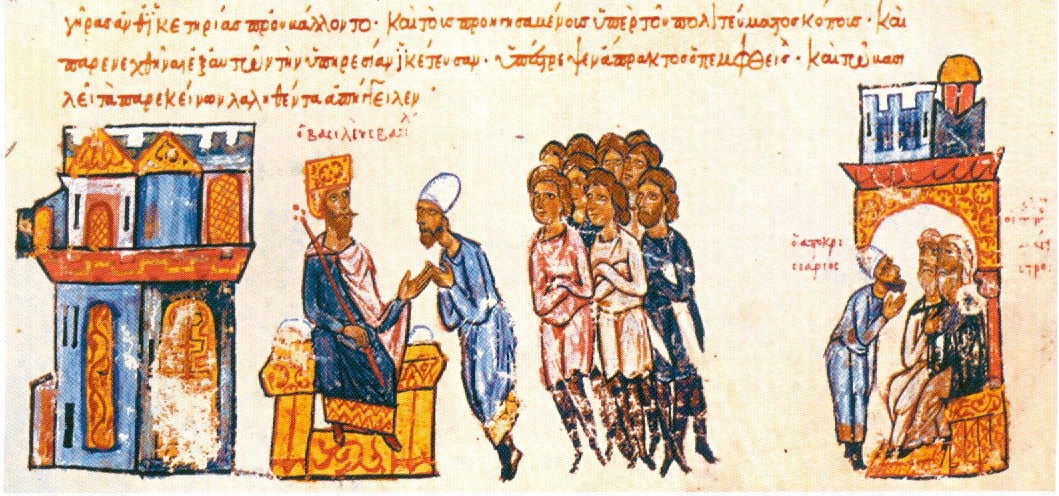 γῆρας ἀνθ ἱκετηρίας προυκάλλοντο· καὶ τοῖς προηγησαμένοις ὑπὲρ τοῦ πολιτεύματος κόποις· καὶ
παρενεχθῆναι ἐξ αὐτῶν τὴν ὑπηρεσίαν ἱκέτευσαν· ὑπέστρεψεν ἄπρακτος ὁ πεμφθεὶς· καὶ τῶ βασι
λεῖ τὰ παρ ἐκείνων λαληθέντα ἀπήγγειλεν·
ὁ βασιλεὺς βασιλ
ὁ ἀποκρι
σιάριος